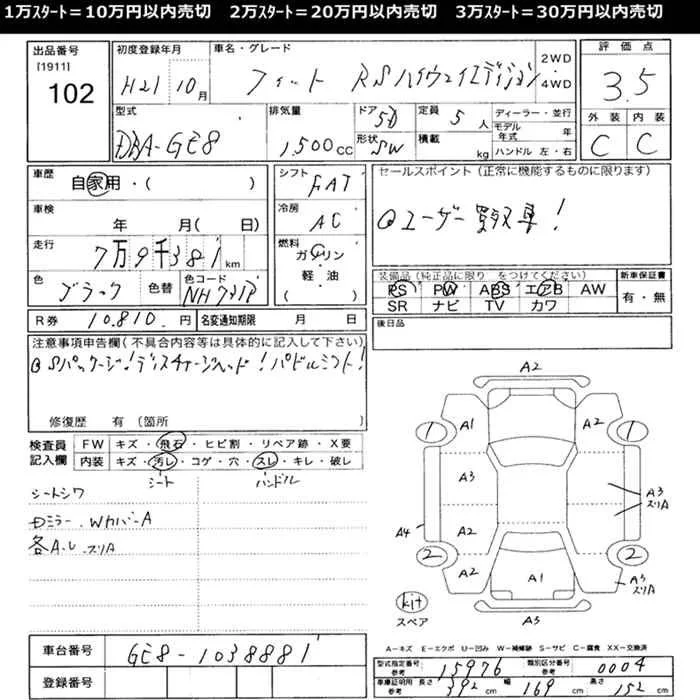 1万ｽﾀｰﾄ＝10万円以内売切　2万ｽﾀｰﾄ＝20万円以内売切　3万ｽﾀｰﾄ＝30万円以内売切
出品番号 [1911] 102
初度登録年月 H21 10月
車名・グレード フィット RSハイウェイエディション 2WD・4WD
評価点 3.5
外装 C 内装 C
型式 DBA-GE8
排気量 1,500cc
ドア 5D
形状 SW
定員 5人
積載 kg
ディーラー・並行
モデル年式 年
ハンドル 左・右
車歴 自家用・( )
シフト FAT
セールスポイント (正常に機能するものに限ります)
◎ユーザー買取車!
車検 年 月( 日)
冷房 AC
走行 7万9千381km
燃料 ガソリン 軽・油 ( )
色 ブラック 色替
色コード
装備品(純正品に限り をつけてください)
PS PW ABS エアB AW
SR ナビ TV カワ
新車保証書 有・無
R券 10.810.円
名変通知期限 月 日
後日品
注意事項申告欄(不具合内容等は具体的に記入して下さい)
◎Sパッケージ!ディスチャージヘッド!パドルシフト!
修復歴 有 (箇所
検査員記入欄
FW キズ・飛石・ヒビ割・リペア跡・X要
内装 キズ・汚レ・コゲ・穴・スレ・キレ・破レ
シート ハンドル
シートシワ
Dミラー.WカバーA
各A.U .スリA
A2
1 A1 A2 1
A3
A3 スリA
A4 A2
2 A2 A1 2
A3 スリA
kit スペア
A3
A－キズ E－エクボ U－凹み W－補修跡 S－サビ C－腐食 XX－交換済
車台番号 GE8-1038881
登録番号
型式指定番号 参考 15976
類別区分番号 参考 0004
車庫証明用 参考 長さ 392 cm 幅 169 cm 高さ 152 cm